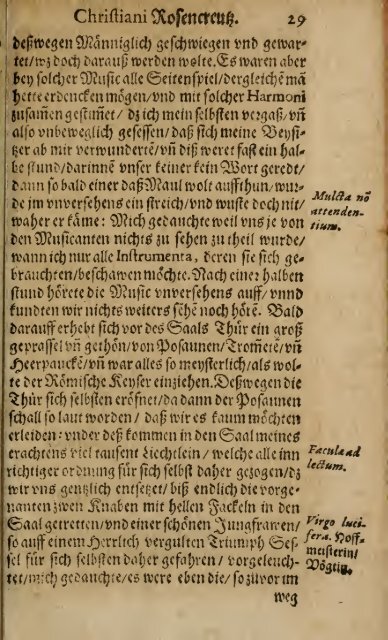 Christiani Rosencreutz. 29
deßwegen Männiglich geschwiegen vnd gewar-
tet/wz doch darauß werden wolte. Es waren aber
bey solcher Music alle Seitenspiel/dergleichẽ mã
hette erdencken mögen/vnd mit solcher Harmoni
zusamẽ gestim̃et/ dz ich mein selbsten vergaß/ vñ
also vnbeweglich gesessen/ daß sich meine Beysi-
tzer ab mir verwunderten/ vñ diß weret fast ein hal-
be stund/ darinnẽ vnser keiner kein Wort geredt/
dann so bald einer daß Maul wolt auffthun/wur-
de jm vnversehens ein streich/vnd wuste doch nit/
waher er käme: Mich gedauchte weil vns je von
den Musicanten nichts zu sehen zu theil wurde/
wann ich nur alle Instrumenta, deren sie sich ge-
brauchten/beschawen möchte. Nach einer halben
stund hörete die Music vnversehens auff/ vnnd
kundten wir nichts weiters sehẽ noch hörẽ. Bald
darauff erhebt sich vor des Saals Thür ein groß
geprassel vñ gethön/von Posaunen/Trom̃etẽ/vñ
Heerpauckẽ/ vñ war alles so meysterlich/als wol-
te der Römische Keyser einziehen. Deßwegen die
Thür sich selbsten eröfnet/da dann der Posaunen
schall so laut worden/ daß wir es kaum möchten
erleiden: vnder deß kommen in den Saal meines
erachtens viel tausent Liechtlein/ welche alle inn
richtiger ordnung für sich selbst daher gezogen/dz
wir vns gentzlich entsetzet/ biß endlich die vorge-
nanten zween Knaben mit hellen Fackeln in den
Saal getretten/vnd einer schönen Jungfrawen/
so auff einem Herrlich vergulten Triumph Ses-
sel für sich selbsten daher gefahren/ vorgeleuch-
tet/mich gedauchte/es were eben die/ so zuvor im
weg
Mulcta nõ
attenden-
tium.
Faculæ ad
lectum.
Virgo luci-
fera. Hoff-
meisterin/
Vögtin.